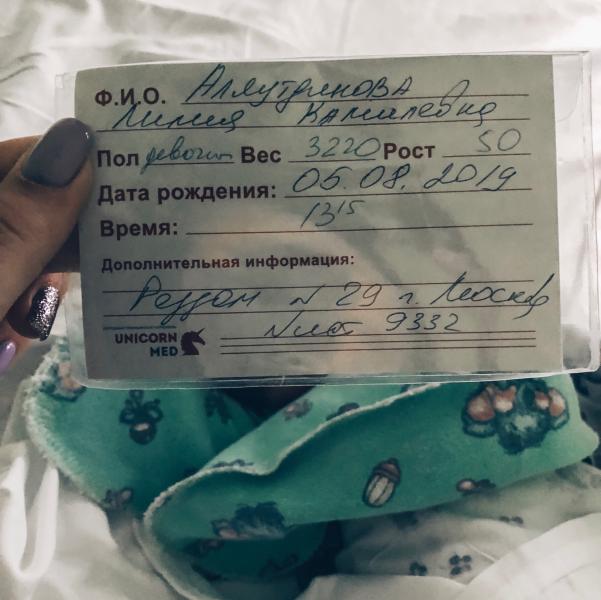 Ф.И.О. Аллутдинова
Лилия Камилевна
Пол девочка Вес 3220 Рост 50
Дата рождения: 05.08.2019
Время: 13 15
Дополнительная информация:
Роддом N 29 г. Москвы
9332
UNICORN
MED